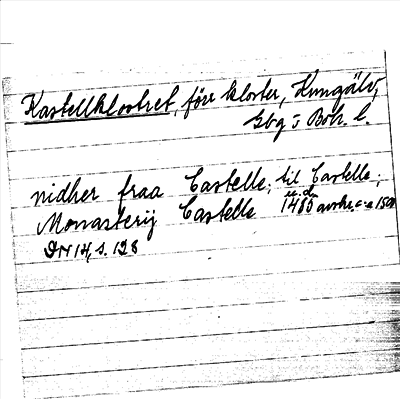 Kastellklostret, förr kloster, Kungälv,
Gbg o Boh. l.
nidher fraa Castelle; til Castelle;
Monasterij Castelle u.d. 1485 avskr. c-a 1500
DN 14, s. 128